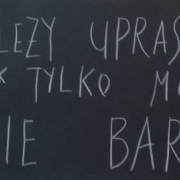 LEŻY UPRAS
K TYLKO MO
IE BAR